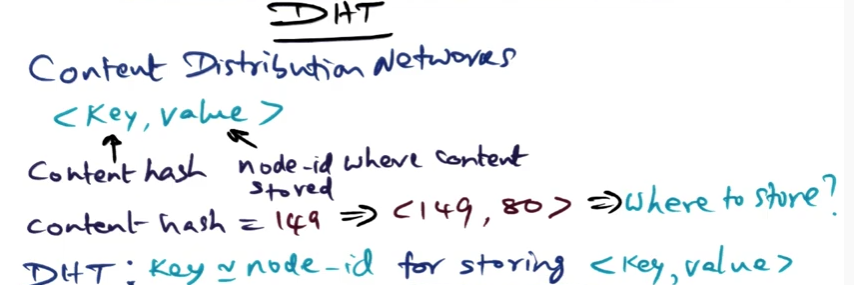 DHT
Content Distribution Networks
<Key, value>
Content hash node-id where content stored
content hash = 149 => <149, 80> => where to store?
DHT: Key ≃ node-id for storing <Key, value>